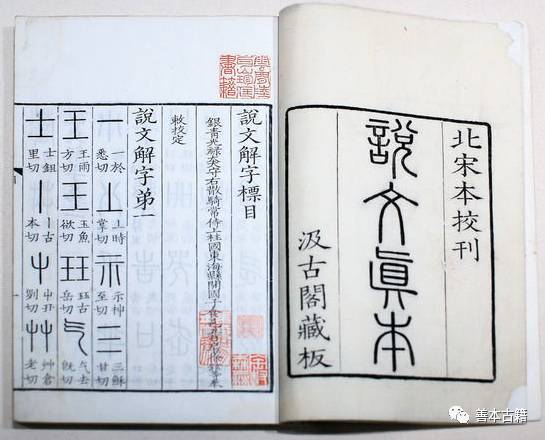 北宋本校刊
說文眞本
汲古閣藏板
說文解字標目
銀青光祿大夫守右散騎常侍上柱國東海縣開國子食邑五百戶臣徐鉉等奉
敕校定
說文解字第一
一 一於悉切 丄 丄時掌切 示 示神至切 三 三穌甘切
王 王雨方切 王 玉魚欲切 玨 玨古岳切 气 气去旣切
士 士鉏里切 丨 丨古本切 屮 屮丑 切 艸 艸倉老切
書籍
善本古籍